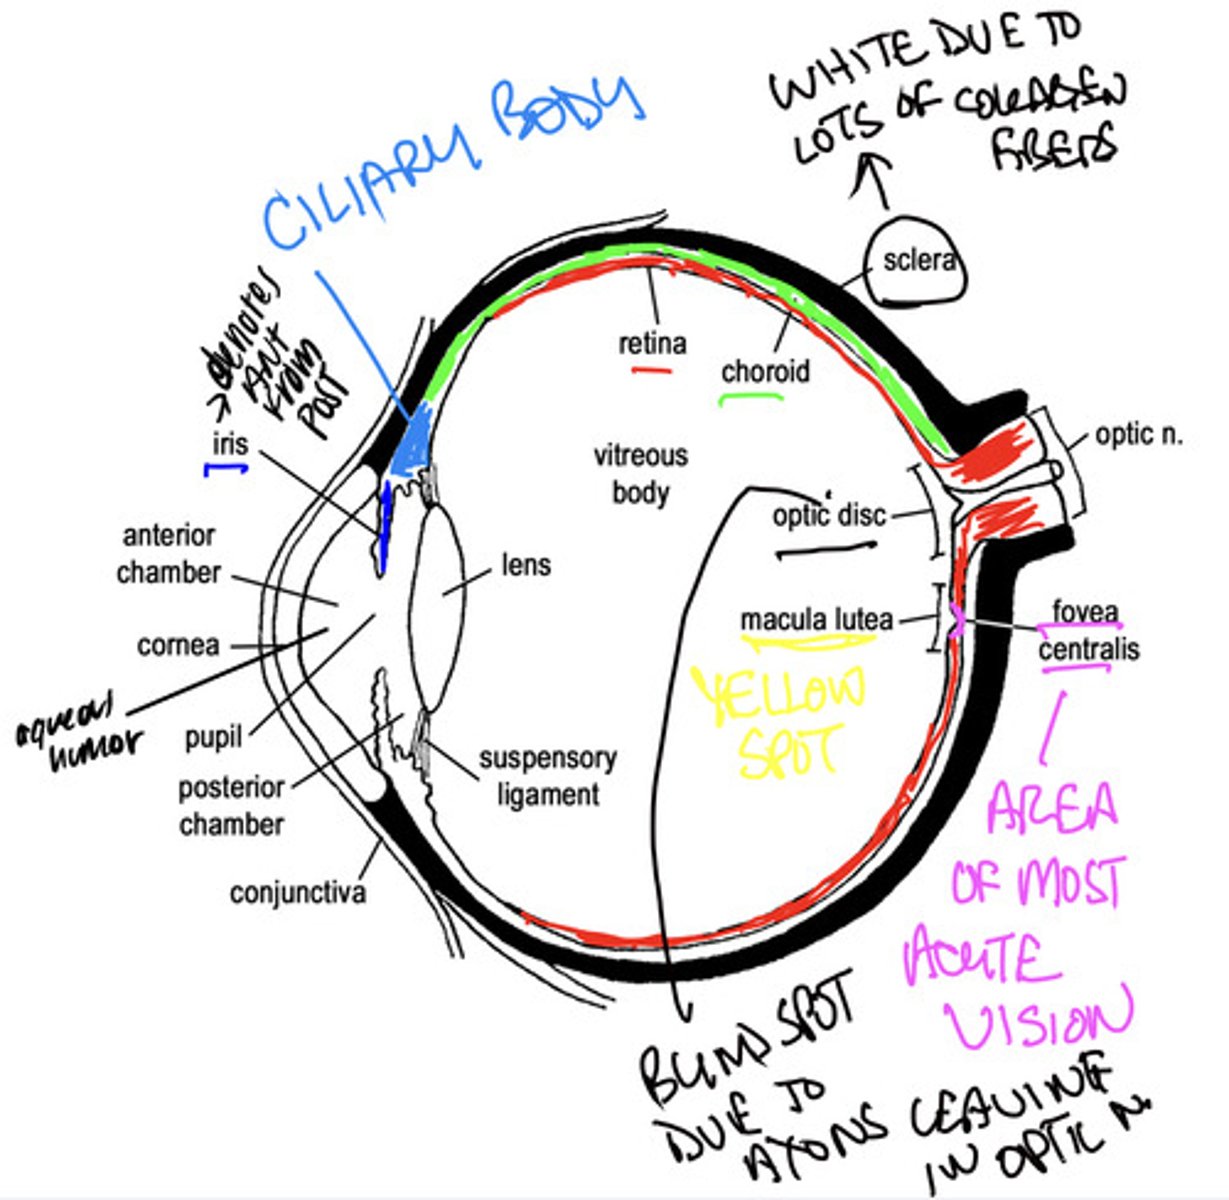 WHITE DUE TO
LOTS OF COLLAGEN
FIBERS
CILIARY BODY
sclera
> denotes
ANT
FROM
POST
retina
choroid
iris
optic n.
vitreous
body
optic disc
anterior
chamber
lens
cornea
macula lutea
fovea
centralis
YELLOW
SPOT
aqueous
humor
pupil
posterior
chamber
suspensory
ligament
conjunctiva
AREA
OF MOST
ACUTE
VISION
BLIND SPOT
DUE TO
AXONS LEAVING
IN OPTIC N.